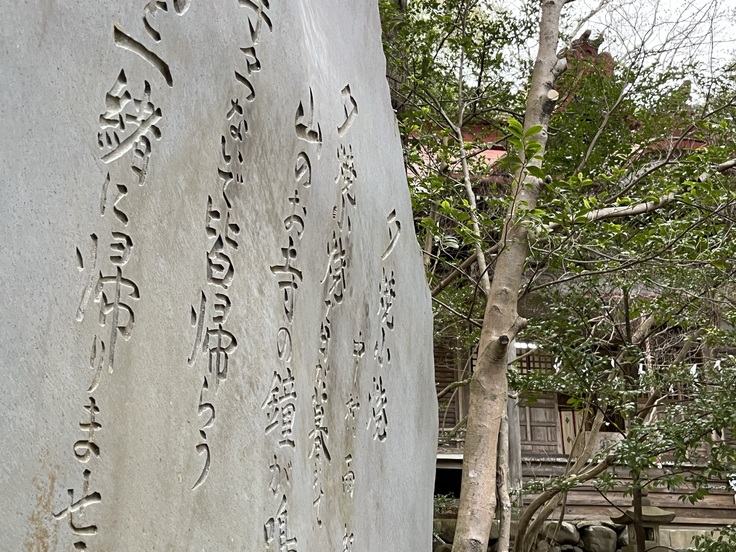 夕焼小焼
中村雨
夕焼小焼で日が暮れて
山のお寺の鐘が鳴
つないで皆帰らう
と一緒に帰りませ